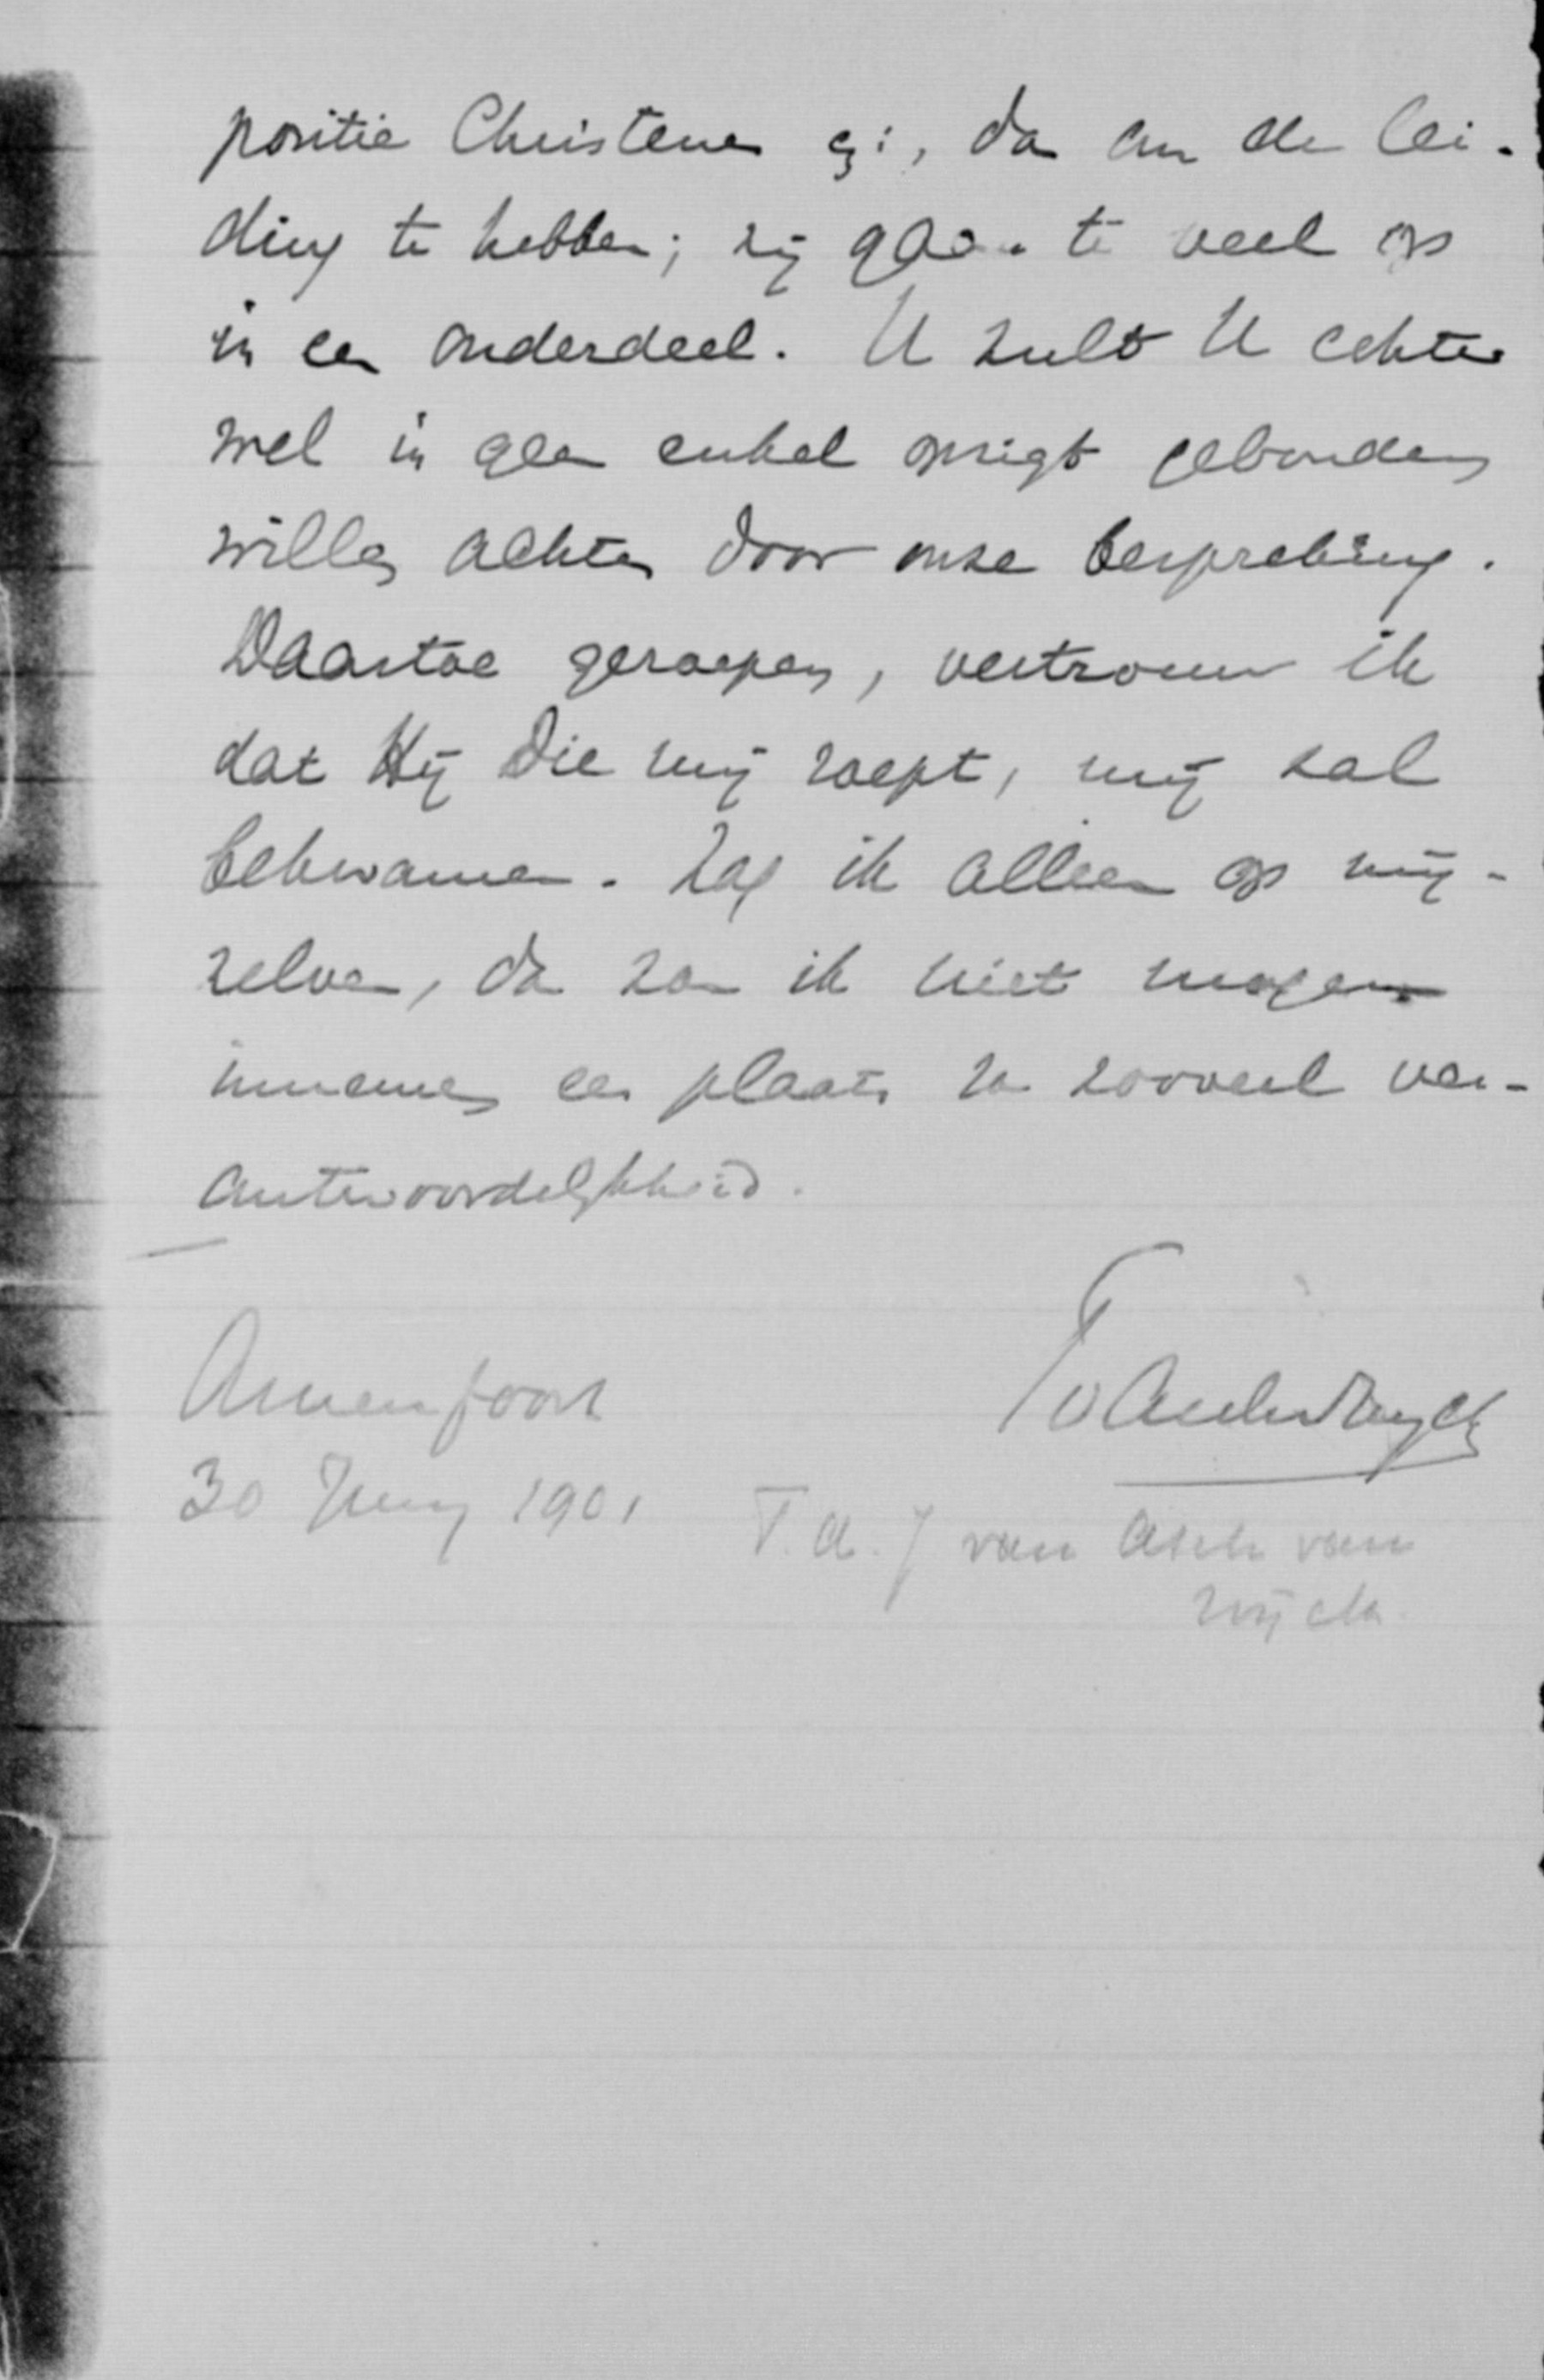 positie Christenen zijn, dan om de lei-
ding te hebben; zij gaan te veel op
in een onderdeel. U zult U echter
wel in geen enkel opzigt gebonden
willen achten door onze bespreking.
Daartoe geroepen, vertrouw ik
dat Hij Die mij roept, mij zal
bekwamen. Zag ik alleen op mij-
zelven, dan zou ik niet mogen
innemen een plaats van zooveel ver-
antwoordelijkheid.
Amersfoort
TvAschvWyck
30 Juny 1901
T.A.J van Asch van
Wijck.